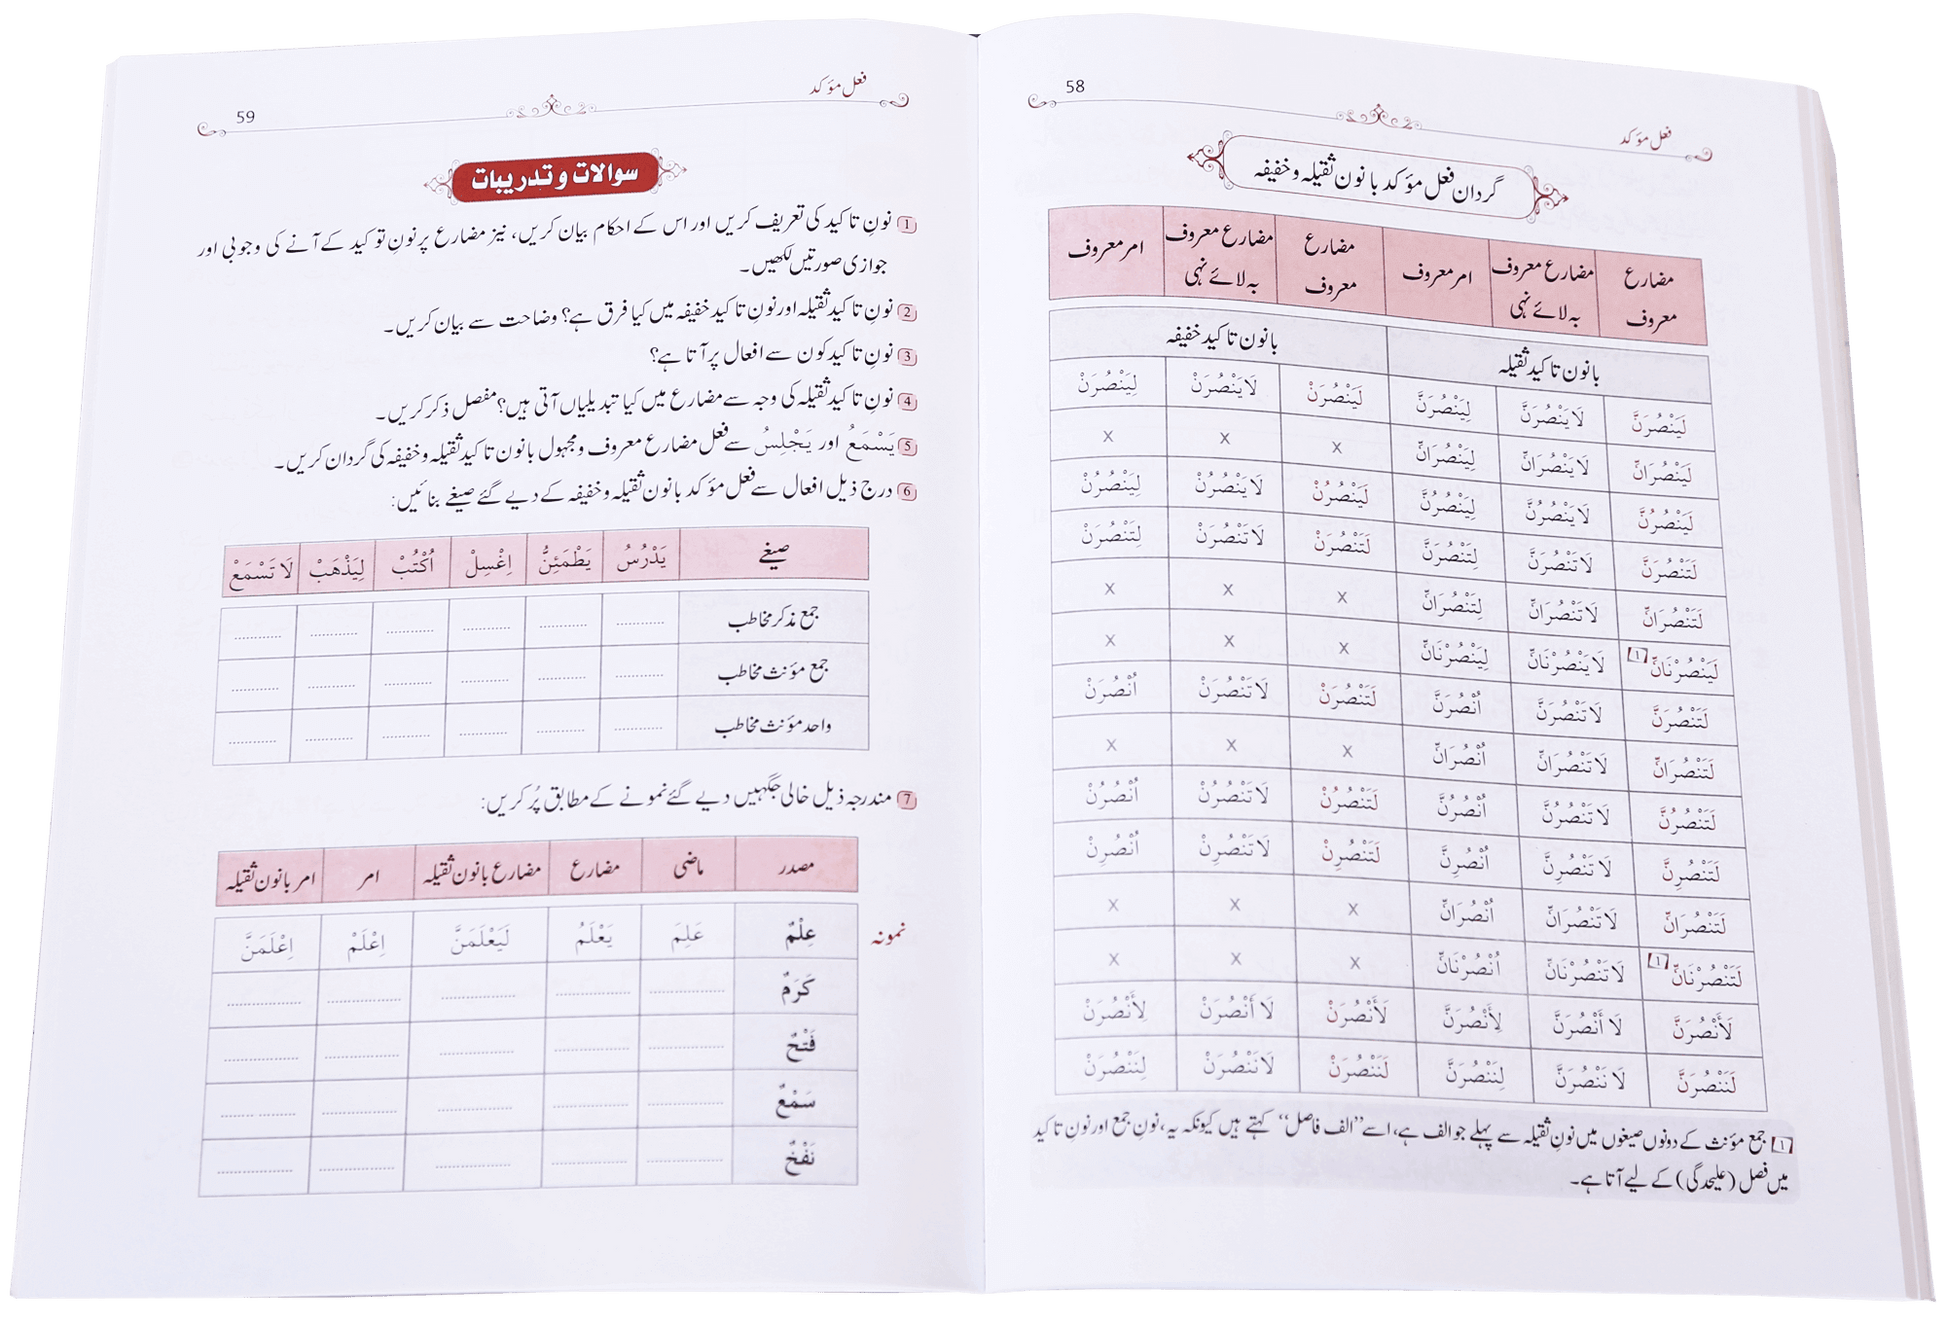 58
فعل مؤکد
گردان فعل مؤکد بانون ثقیلہ و خفیفہ
مضارع معروف | مضارع معروف بہ لائے نہی | امر معروف | مضارع معروف | مضارع معروف بہ لائے نہی | امر معروف
بانون تاکید ثقیلہ | بانون تاکید خفیفہ
لَيَنْصُرَنَّ | لَا يَنْصُرَنَّ | لِيَنْصُرَنَّ | لَيَنْصُرَنْ | لَا يَنْصُرَنْ | لِيَنْصُرَنْ
لَيَنْصُرَانِّ | لَا يَنْصُرَانِّ | لِيَنْصُرَانِّ | x | x | x
لَيَنْصُرُنَّ | لَا يَنْصُرُنَّ | لِيَنْصُرُنَّ | لَيَنْصُرُنْ | لَا يَنْصُرُنْ | لِيَنْصُرُنْ
لَتَنْصُرَنَّ | لَا تَنْصُرَنَّ | لِتَنْصُرَنَّ | لَتَنْصُرَنْ | لَا تَنْصُرَنْ | لِتَنْصُرَنْ
لَتَنْصُرَانِّ | لَا تَنْصُرَانِّ | لِتَنْصُرَانِّ | x | x | x
لَيَنْصُرْنَانِّ 1 | لَا يَنْصُرْنَانِّ | لِيَنْصُرْنَانِّ | x | x | x
لَتَنْصُرَنَّ | لَا تَنْصُرَنَّ | اُنْصُرَنَّ | لَتَنْصُرَنْ | لَا تَنْصُرَنْ | اُنْصُرَنْ
لَتَنْصُرَانِّ | لَا تَنْصُرَانِّ | اُنْصُرَانِّ | x | x | x
لَتَنْصُرُنَّ | لَا تَنْصُرُنَّ | اُنْصُرُنَّ | لَتَنْصُرُنْ | لَا تَنْصُرُنْ | اُنْصُرُنْ
لَتَنْصُرِنَّ | لَا تَنْصُرِنَّ | اُنْصُرِنَّ | لَتَنْصُرِنْ | لَا تَنْصُرِنْ | اُنْصُرِنْ
لَتَنْصُرَانِّ | لَا تَنْصُرَانِّ | اُنْصُرَانِّ | x | x | x
لَتَنْصُرْنَانِّ 1 | لَا تَنْصُرْنَانِّ | اُنْصُرْنَانِّ | x | x | x
لَأَنْصُرَنَّ | لَا أَنْصُرَنَّ | لِأَنْصُرَنَّ | لَأَنْصُرَنْ | لَا أَنْصُرَنْ | لِأَنْصُرَنْ
لَنَنْصُرَنَّ | لَا نَنْصُرَنَّ | لِنَنْصُرَنَّ | لَنَنْصُرَنْ | لَا نَنْصُرَنْ | لِنَنْصُرَنْ
1 جمع مؤنث کے دونوں صیغوں میں نونِ ثقیلہ سے پہلے جو الف ہے، اسے ’’الف فاصل‘‘ کہتے ہیں کیونکہ یہ، نونِ جمع اور نونِ تاکید
میں فصل (علیحدگی) کے لیے آتا ہے۔
59
فعل مؤکد
سوالات و تدریبات
1 نونِ تاکید کی تعریف کریں اور اس کے احکام بیان کریں، نیز مضارع پر نونِ توکید کے آنے کی وجوبی اور
جوازی صورتیں لکھیں۔
2 نونِ تاکید ثقیلہ اور نونِ تاکید خفیفہ میں کیا فرق ہے؟ وضاحت سے بیان کریں۔
3 نونِ تاکید کون سے افعال پر آتا ہے؟
4 نونِ تاکید ثقیلہ کی وجہ سے مضارع میں کیا تبدیلیاں آتی ہیں؟ مفصل ذکر کریں۔
5 يَسْمَعُ اور يَجْلِسُ سے فعل مضارع معروف و مجہول بانون تاکید ثقیلہ و خفیفہ کی گردان کریں۔
6 درج ذیل افعال سے فعل مؤکد بانون ثقیلہ و خفیفہ کے دیے گئے صیغے بنائیں:
صیغے | يَدْرُسُ | يَطْمَئِنُّ | اِغْسِلْ | اُكْتُبْ | لِيَذْهَبْ | لَا تَسْمَعْ
جمع مذکر مخاطب
جمع مؤنث مخاطب
واحد مؤنث مخاطب
7 مندرجہ ذیل خالی جگہیں دیے گئے نمونے کے مطابق پُر کریں:
مصدر | ماضی | مضارع | مضارع بانون ثقیلہ | امر | امر بانون ثقیلہ
نمونہ عِلْمٌ | عَلِمَ | يَعْلَمُ | لَيَعْلَمَنَّ | اِعْلَمْ | اِعْلَمَنَّ
كَرَمٌ
فَتْحٌ
سَمْعٌ
نَفْخٌ